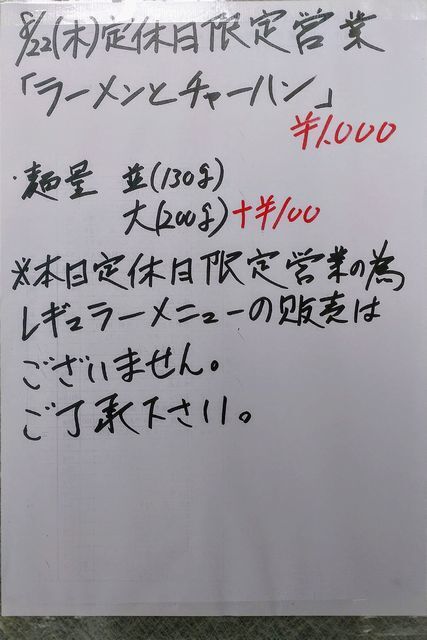 8/22(木)定休日限定営業
「ラーメンとチャーハン」
¥1.000
・麺量 並(130g)
大(200g)+¥100
※本日定休日限定営業の為
レギュラーメニューの販売は
ございません。
ご了承下さい。